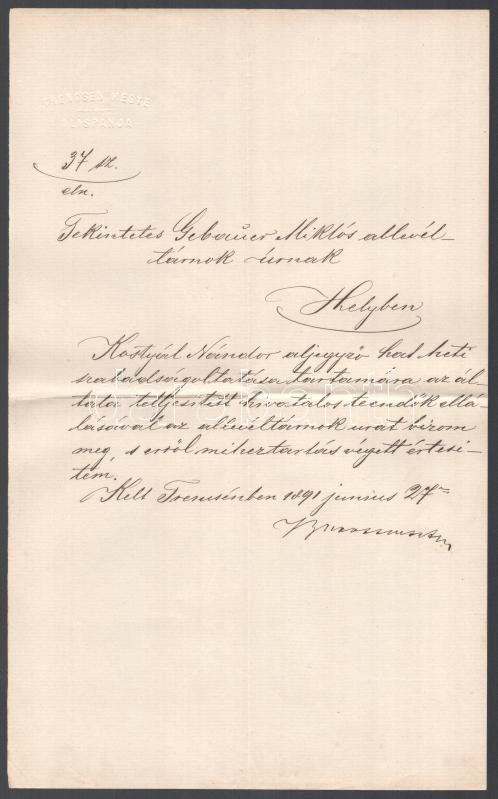 TRENCSÉN MEGYE
ALISPÁNJA
37 sz.
eln.
Tekintetes Gebauer Miklós allevél-
tárnok úrnak
Helyben
Kostyál Nándor aljegyző hat heti
szabadságoltatása tartamára az ál-
tala teljesitett hivatalos teendők ellá-
tásával az allevéltárnok urat bizom
meg, s erről miheztartás végett értesi-
tem.
Kelt Trencsénben 1891 junius 27